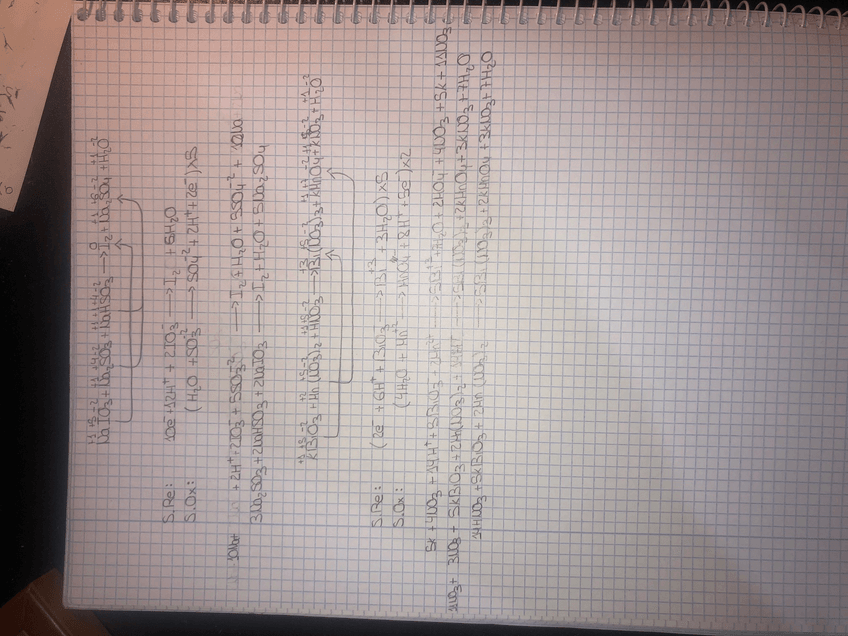 NaIO3 + Na2SO3 + NaHSO3 ⟶ I2 + Na2SO4 + H2O
S.Re: 10e⁻ + 12H⁺ + 2IO3⁻ ⟶ I2 + 6H2O
S.Ox: (H2O + SO3⁻² ⟶ SO4⁻² + 2H⁺ + 2e⁻) x5
+ 2H⁺ + 2IO3⁻ + 5SO3⁻² ⟶ I2 + H2O + 5SO4⁻² + 12Na
3Na2SO3 + 2NaHSO3 + 2NaIO3 ⟶ I2 + H2O + 5Na2SO4
KBiO3 + Mn(NO3)2 + HNO3 ⟶ Bi(NO3)3 + KMnO4 + KNO3 + H2O
S.Re: (2e⁻ + 6H⁺ + BiO3⁻ ⟶ Bi⁺³ + 3H2O) x5
S.Ox: (4H2O + Mn⁺² ⟶ MnO4⁻ + 8H⁺ + 5e⁻) x2
5K + 4NO3 + 14H⁺ + 5BiO3 + 2Mn²⁺ ⟶ 5Bi⁺³ + 7H2O + 2MnO4⁻ + 4NO3 + 5K + 11NO3
+ 5KBiO3 + 2Mn(NO3)2 + 14H⁺ ⟶ 5Bi(NO3)3 + 2KMnO4 + 3KNO3 + 7H2O
14HNO3 + 5KBiO3 + 2Mn(NO3)2 ⟶ 5Bi(NO3)3 + 2KMnO4 + 3KNO3 + 7H2O